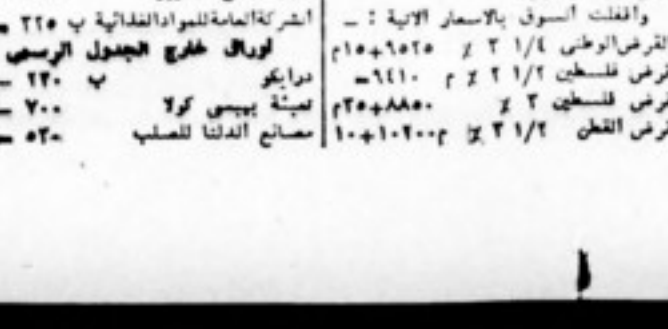 واقفلت السوق بالاسعار الاتية : ـ
القرض الوطنى ٣ ١/٤ ٪ ٩٥٢٥+١٥م
قرض فلسطين ٢ ١/٢ ٪ م ٩٤١٠ـ
قرض فلسطين ٣ ٪ ٨٨٥٠+٣٥م
قرض القطن ٣ ١/٢ ٪ م١٠٢٠٠+١٠
الشركة العامة للمواد الغذائية ب ٢٢٥ ـ
اوراق خارج الجدول الرسمى
درايكو ب ٢٣٠ ـ
تعبئة بيبسى كولا ٧٠٠ ـ
مصانع الدلتا للصلب ٥٢٠ ـ